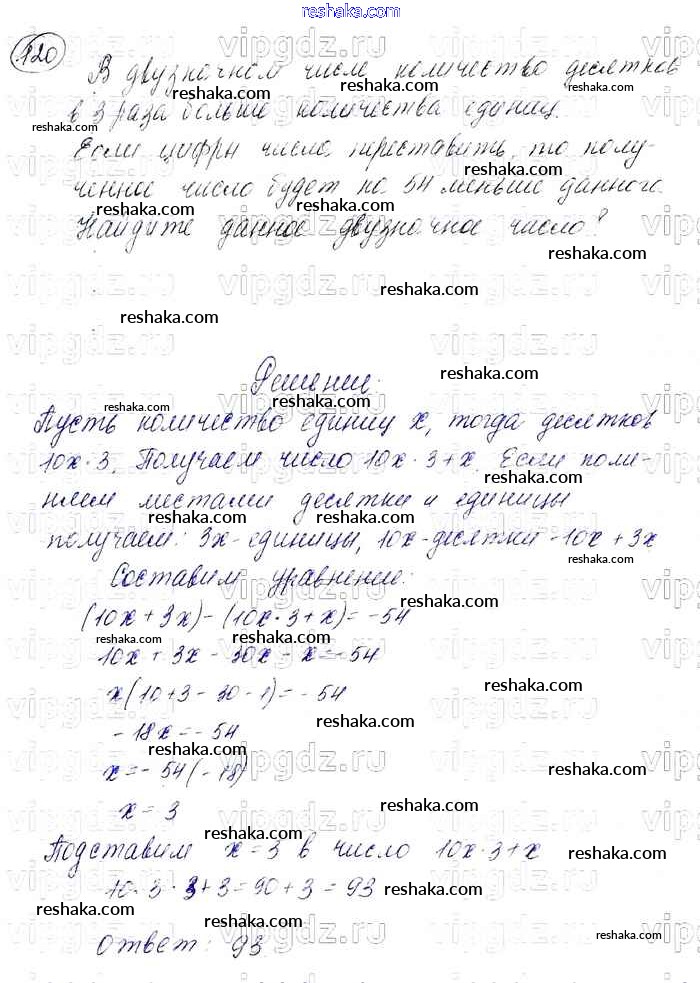 reshaka.com
120
В двузначном числе количество десятков
в 3 раза больше количества единиц.
Если цифры числа переставить, то полу-
ченное число будет на 54 меньше данного.
Найдите данное двузначное число?
Решение:
Пусть количество единиц x, тогда десятков
10x·3. Получаем число 10x·3+x. Если поме-
няем местами десятки и единицы
получаем: 3x-единицы, 10x-десятки -10x+3x
Составим уравнение:
(10x+3x)-(10x·3+x)=-54
10x+3x-30x-x=-54
x(10+3-30-1)=-54
-18x=-54
x=-54(-18)
x=3
Подставим x=3 в число 10x·3+x
10·3·3+3=90+3=93
Ответ: 93